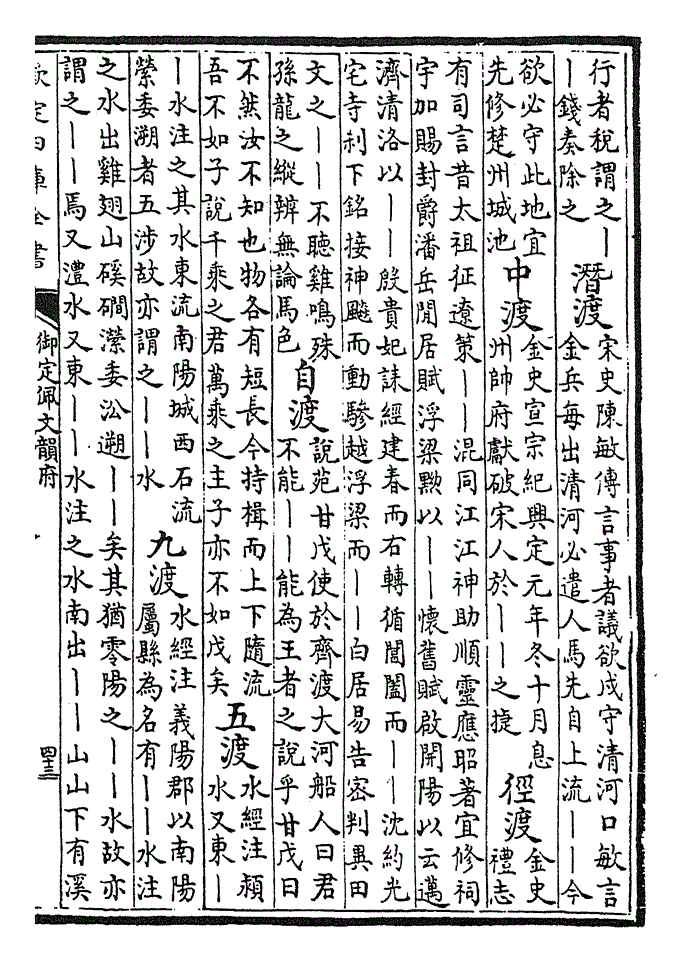 行者稅謂之｜
｜錢奏除之
潛渡
宋史陳敏傳言事者議欲戍守清河口敏言
金兵每出清河必遣人馬先自上流｜｜今
欲必守此地宜
先修楚州城池
中渡
金史宣宗紀興定元年冬十月息
州帥府獻破宋人於｜｜之捷
徑渡
金史
禮志
有司言昔太祖征遼策｜｜混同江江神助順靈應昭著宜修祠
宇加賜封爵潘岳閒居賦浮梁黝以｜｜懷舊賦啟開陽以云邁
濟清洛以｜｜殷貴妃誄經建春而右轉循閶闔而｜｜沈約光
宅寺刹下銘接神飈而動驂越浮梁而｜｜白居易告密判異田
文之｜｜不聽雞鳴殊
孫龍之縱辨無論馬色
自渡
說苑甘戊使於齊渡大河船人曰君
不能｜｜能為王者之說乎甘戊曰
不然汝不知也物各有短長今持楫而上下隨流
吾不如子說千乘之君萬乘之主子亦不如戊矣
五渡
水經注潁
水又東｜
｜水注之其水東流南陽城西石流
縈委溯者五涉故亦謂之｜｜水
九渡
水經注義陽郡以南陽
屬縣為名有｜｜水注
之水出雞翅山磎磵瀠委沿遡｜｜矣其猶零陽之｜｜水故亦
謂之｜｜焉又澧水又東｜｜水注之水南出｜｜山山下有溪
欽定四庫全書
御定佩文韻府
四十三